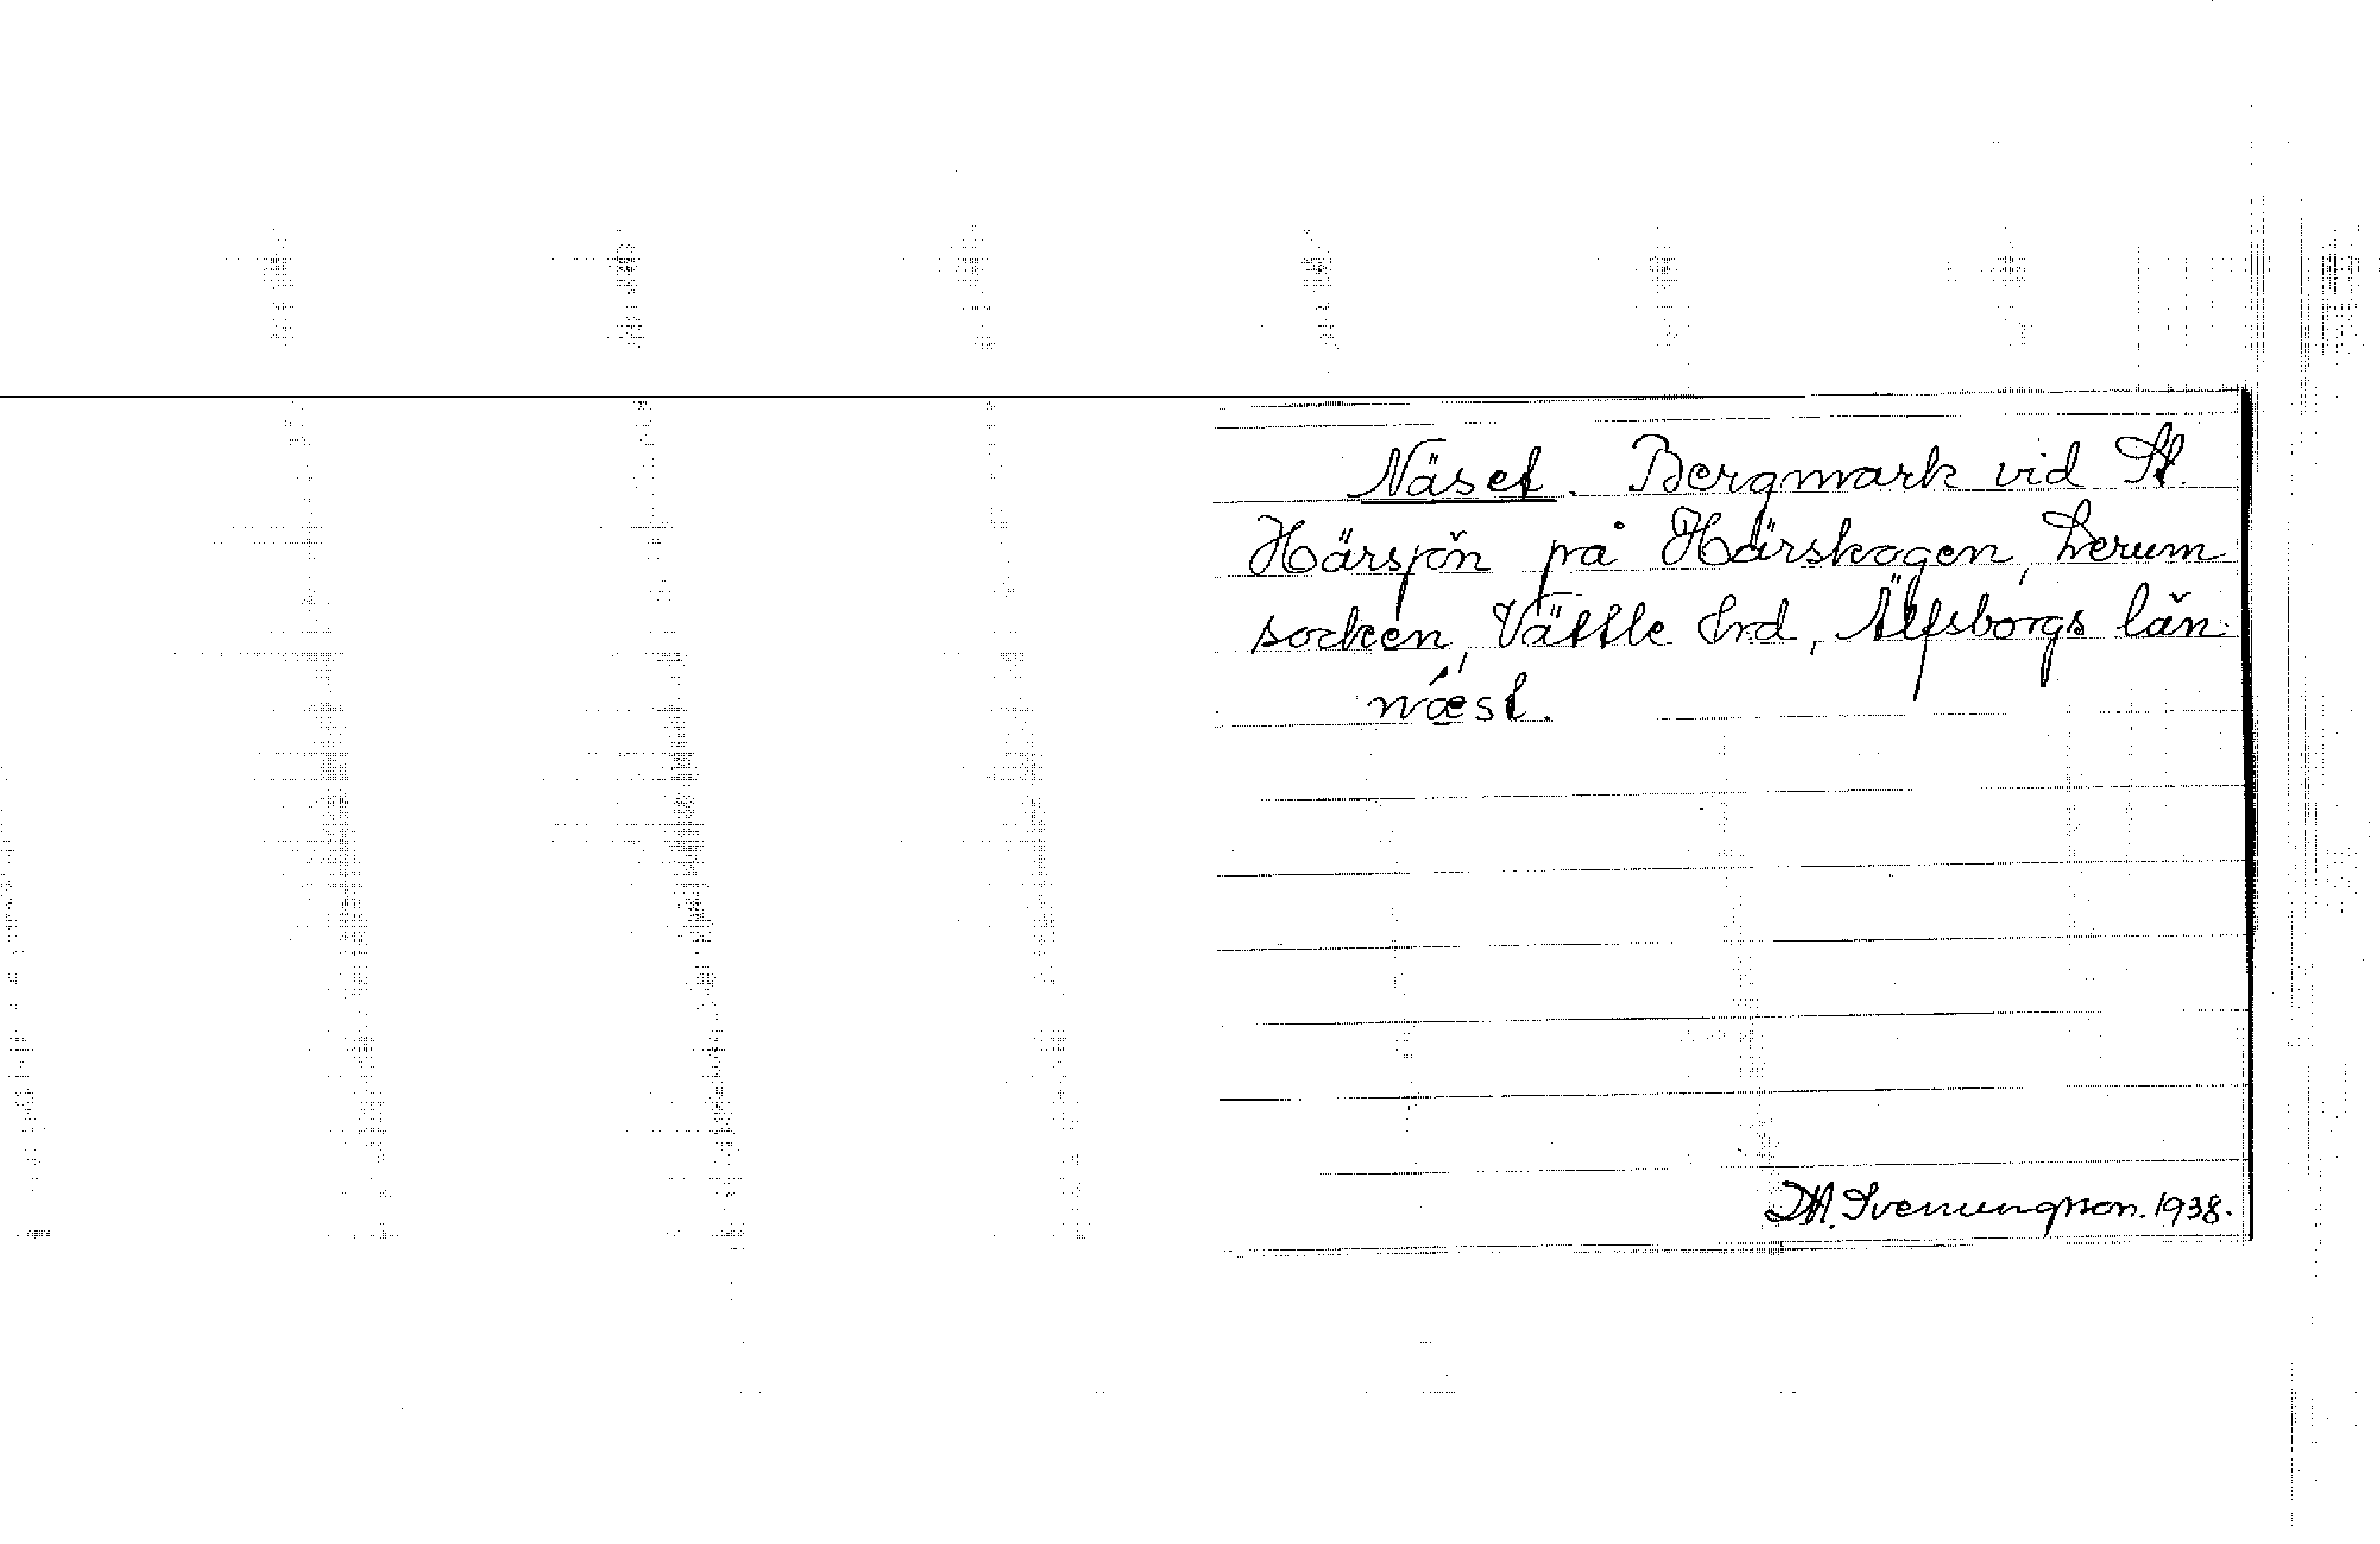 Näset. Bergmark vid St.
Härsjön på Härskogen, Lerum
socken, Vättle hrd, Älfsborgs län.
næ´st.
D.A. Svenungsson. 1938.